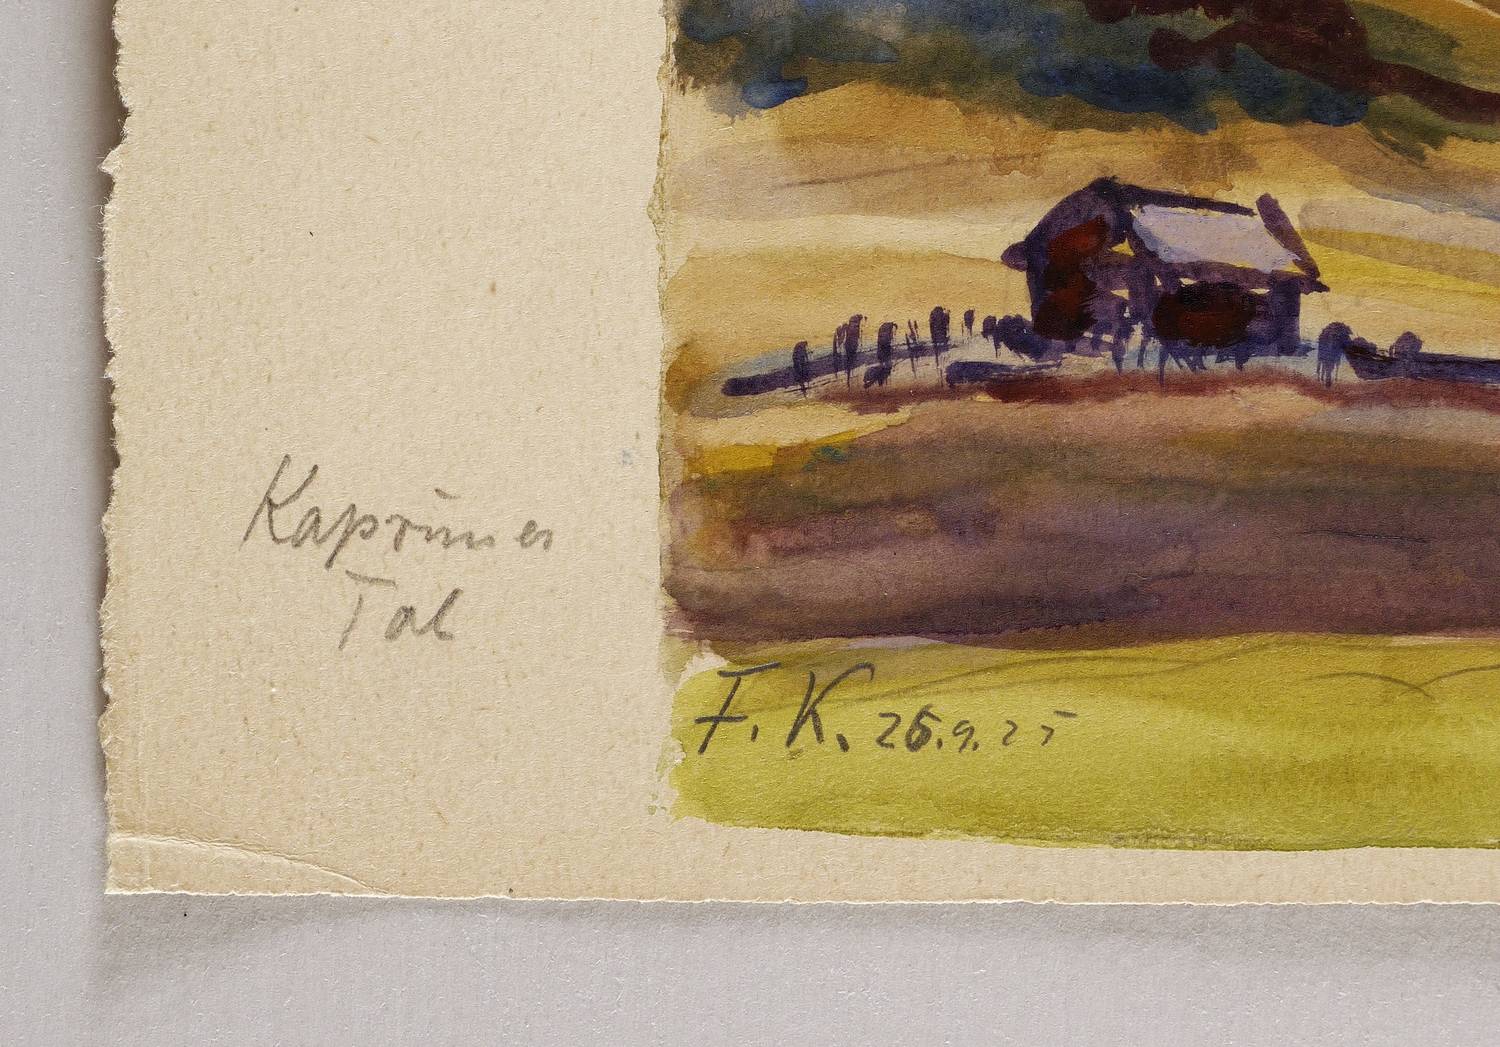 Kapruner
Tal
F. K. 26.9.25